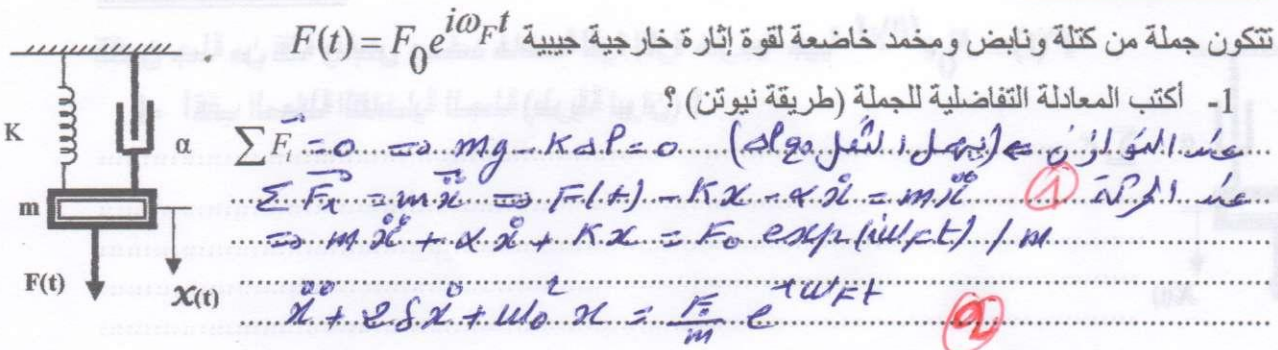 تتكون جملة من كتلة ونابض ومخمد خاضعة لقوة إثارة خارجية جيبية F(t) = F₀e^{iω_F t}
1- أكتب المعادلة التفاضلية للجملة (طريقة نيوتن) ؟
K
α
m
F(t)
x(t)
عند التوازن ⇐ (يهمل الثقل) ΣF⃗ᵢ = 0 ⇒ mg - KΔl = 0
عند الحركة ① ΣF⃗ = mẍ ⇒ F(t) - Kx - αẋ = mẍ
⇒ mẍ + αẋ + Kx = F₀ exp(iω_F t) / m
ẍ + 2δẋ + ω₀² x = F₀/m e^{iω_F t}